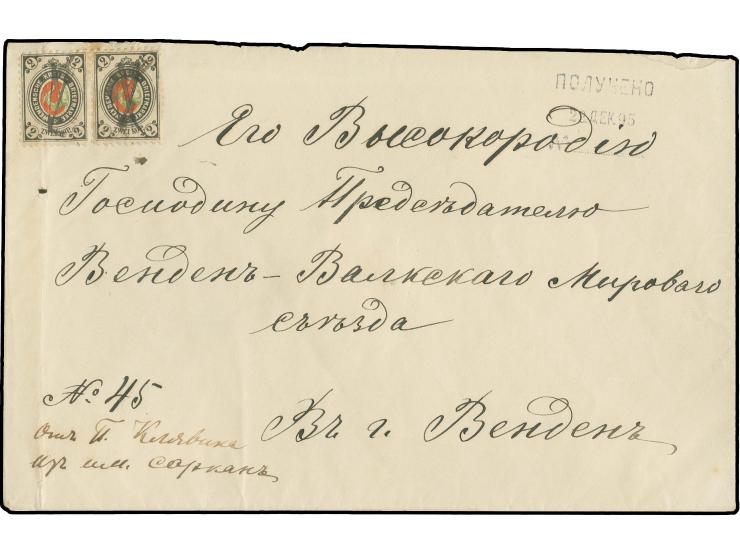 ПОЛУЧЕНО
22 ДЕК.95
№
Его Высокородію
Господину Предсѣдателю
Венденъ-Валкскаго Мироваго
съѣзда
№ 45
отъ П. Клявина
изъ им. Сарканъ
Въ г. Венденъ
2 2
2 2
2 2
2 2